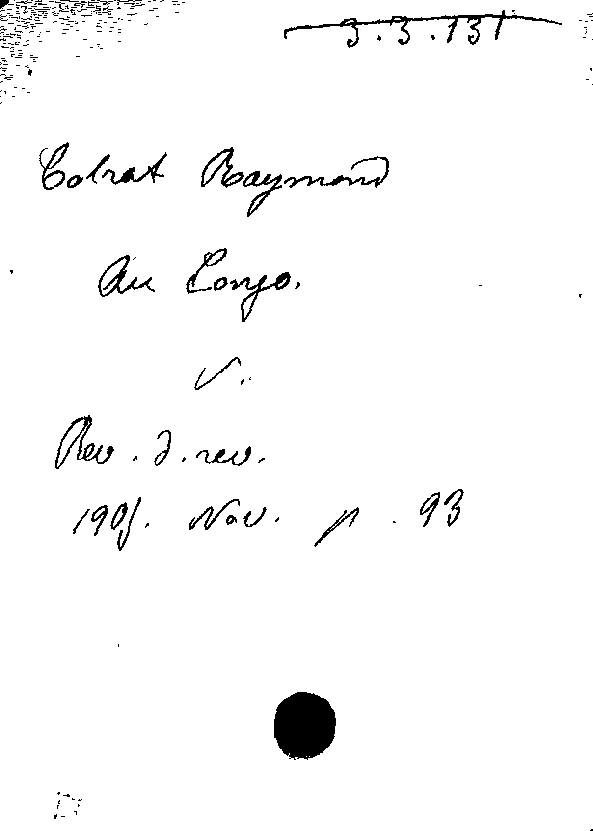 3.3.131
Colrat Raymond
Au Congo.
V.
Rev. d. rev.
1905. Nov. p. 93